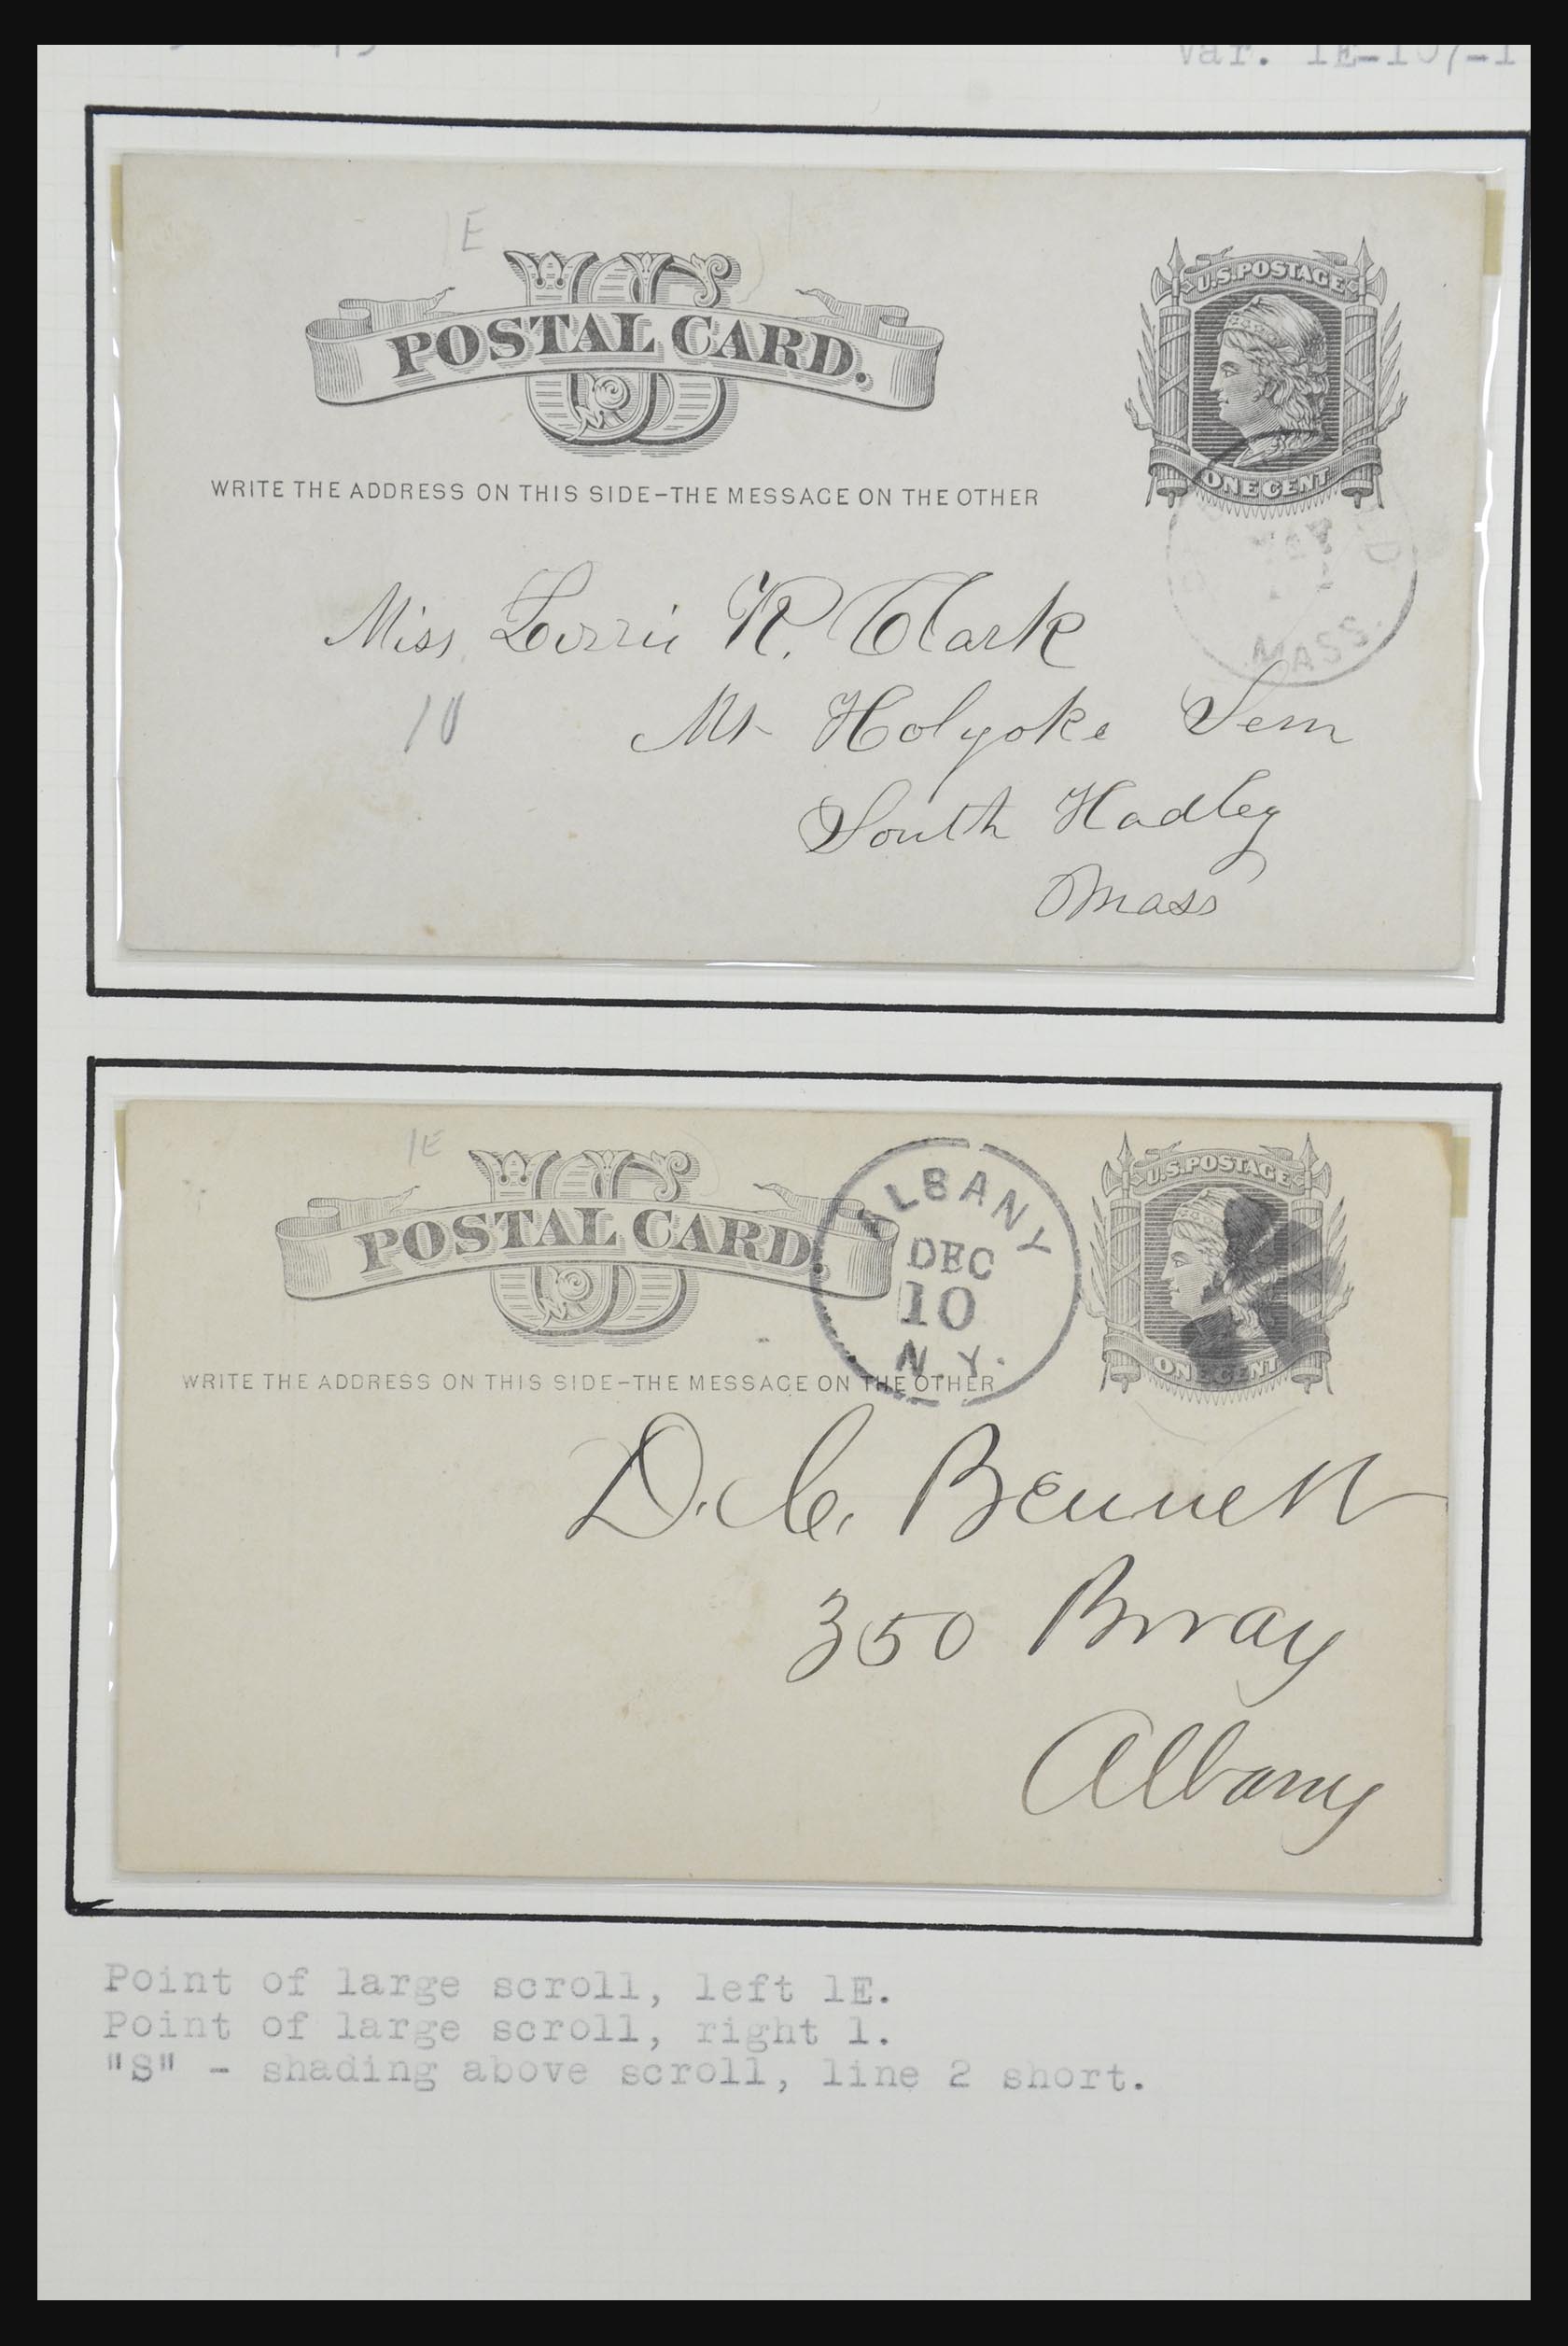 Var. 1E-107-1
1E
US
POSTAL CARD.
U.S. POSTAGE
ONE CENT
WRITE THE ADDRESS ON THIS SIDE–THE MESSAGE ON THE OTHER
MASS.
Miss Lizzie R. Clark
10
Mt Holyoke Sem
South Hadley
Mass
1E
US
POSTAL CARD.
ALBANY
DEC
10
N.Y.
U.S. POSTAGE
ONE CENT
WRITE THE ADDRESS ON THIS SIDE–THE MESSAGE ON THE OTHER
D. C. Bennett
350 Bway
Albany
Point of large scroll, left 1E.
Point of large scroll, right 1.
"S" - shading above scroll, line 2 short.